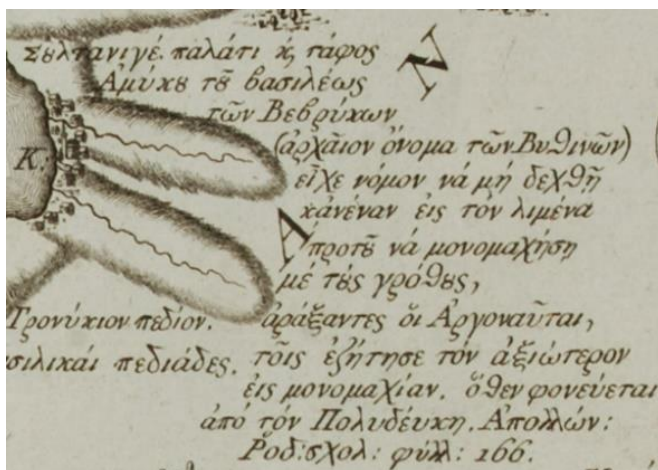 Σȣλτανιγέ. παλάτι κ̀ τάφος
Ἀμύκȣ τȣ͂ βασιλέως
τῶν Βεβρύκων
(ἀρχαῖον ὄνομα τῶν Βυθινῶν)
εἶχε νόμον νὰ μή δεχθῇ
κανέναν εις τὸν λιμένα
προτȣ͂ νὰ μονομαχήσῃ
μέ τȣ́ς γρόθȣς,
ἀράξαντες ὅι Ἀργοναῦται,
τοῖς ἐζήτησε τόν ἀξιώτερον
εἰς μονομαχίαν. ὅθεν φονεύεται
ἀπό τόν Πολυδέυκη. Ἀπολλών:
Ῥοδ: σχολ: φύλλ: 166.
N
K:
A
Γρονύκιον πεδίον.
σιλικάι πεδιάδες.